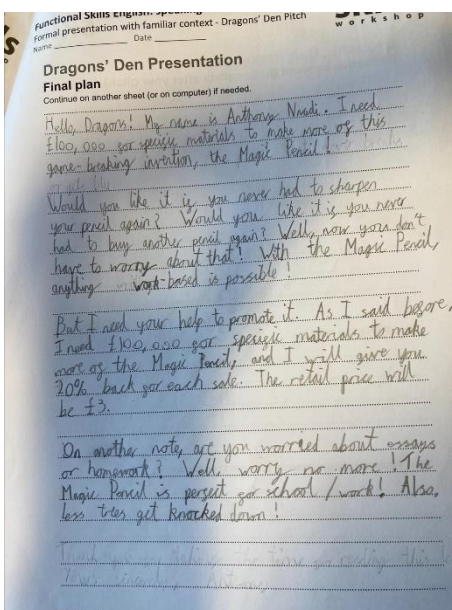 Functional Skills English: Speaking
Formal presentation with familiar context - Dragons' Den Pitch
Name Date
workshop
Dragons' Den Presentation
Final plan
Continue on another sheet (or on computer) if needed.
Hello, Dragons! My name is Anthony Nnadi. I need
£100,000 for specific materials to make more of this
game-breaking invention, the Magic Pencil!
Would you like it if you never had to sharpen
your pencil again? Would you like it if you never
had to buy another pencil again? Well, now you don't
have to worry about that! With the Magic Pencil,
anything work-based is possible!
But I need your help to promote it. As I said before,
I need £100,000 for specific materials to make
more of the Magic Pencil, and I will give you
20% back for each sale. The retail price will
be £3.
On another note, are you worried about essays
or homework? Well worry no more! The
Magic Pencil is perfect for school/work! Also,
less trees get knocked down!
the time for reading this